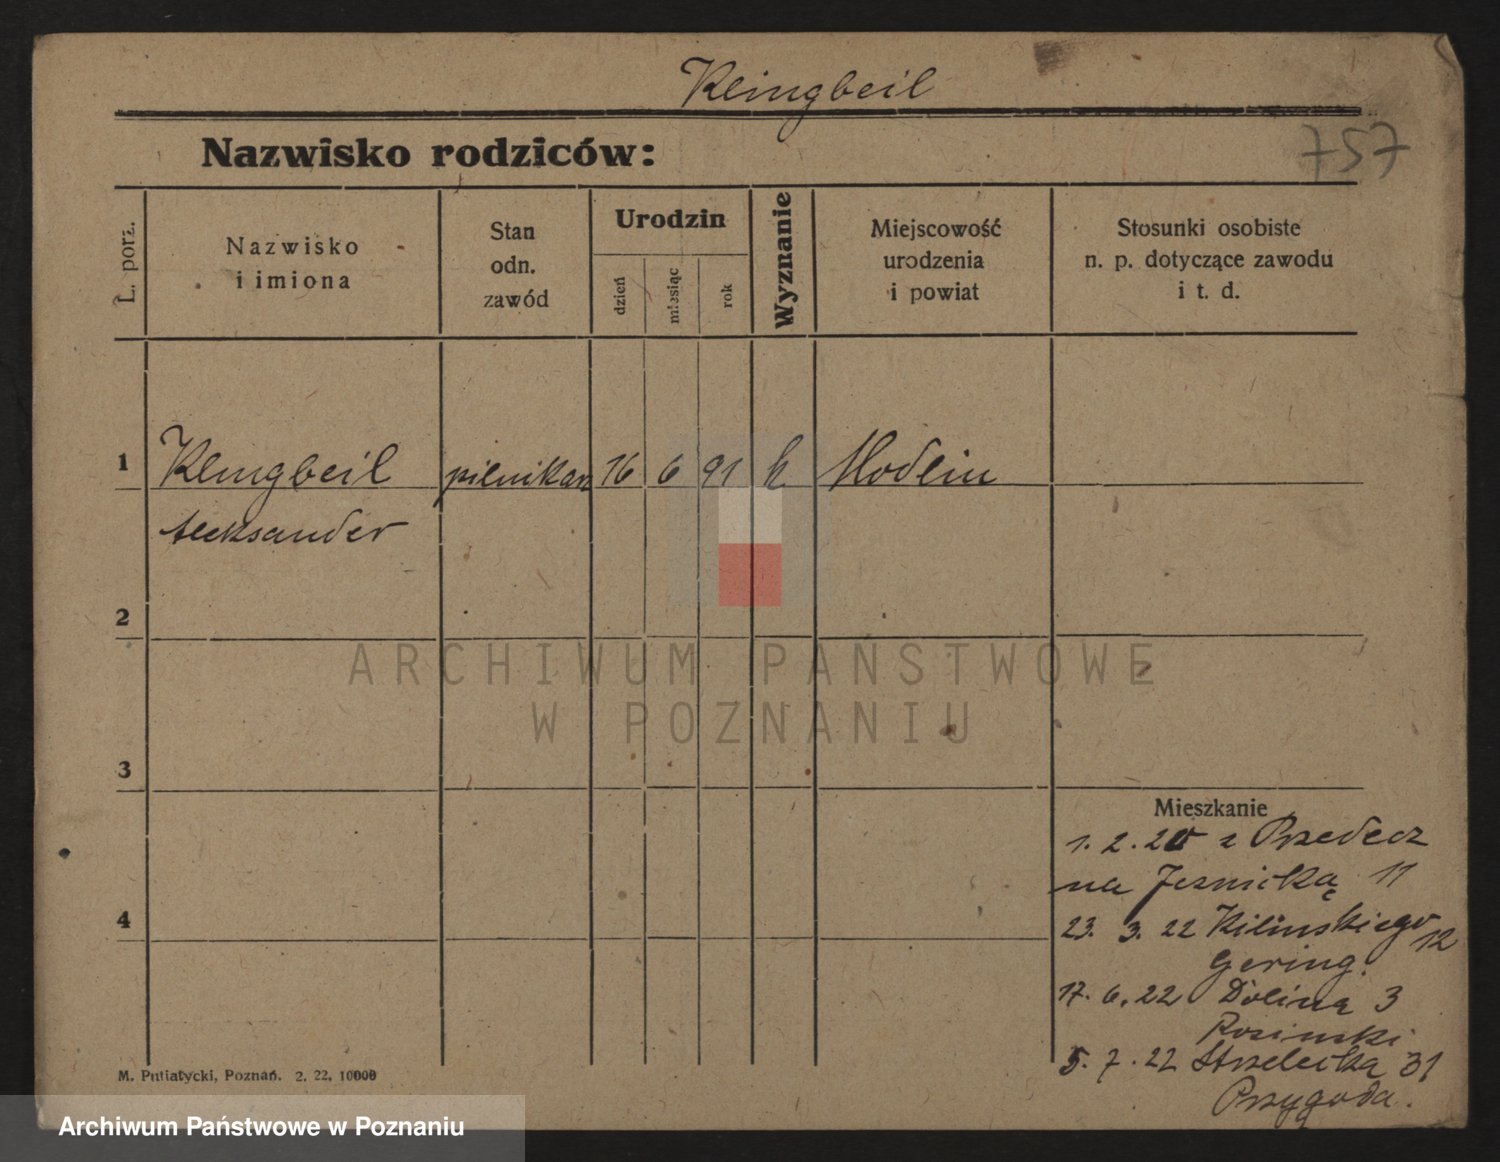 Klingbeil
757
Nazwisko rodziców:
L. porz.
Nazwisko
i imiona
Stan
odn.
zawód
Urodzin
dzień
miesiąc
rok
Wyznanie
Miejscowość
urodzenia
i powiat
Stosunki osobiste
n. p. dotyczące zawodu
i t. d.
1 Klingbeil pilnikarz 16 6 91 k Modlin
Aleksander
2
ARCHIWUM PAŃSTWOWE
W POZNANIU
3
Mieszkanie
1. 2. 20 z Przedecz
na Jesnicką 11
4
23. 3. 22 Kilinskiego 12
Gering.
17. 6. 22 Dolina 3
Rosinski
5. 7. 22 Strzelecka 31
Przygoda.
M. Putiatycki, Poznań. 2. 22. 10000
Archiwum Państwowe w Poznaniu